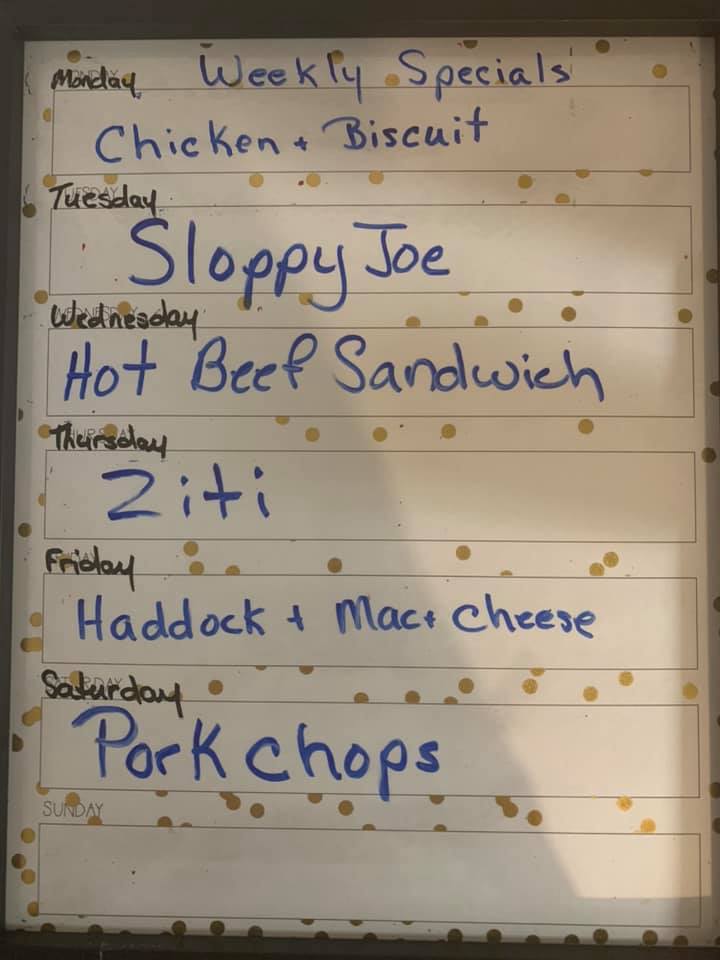 Weekly Specials
Monday
Chicken + Biscuit
Tuesday
Sloppy Joe
Wednesday
Hot Beef Sandwich
Thursday
Ziti
Friday
Haddock + Mac + Cheese
Saturday
Pork Chops
SUNDAY